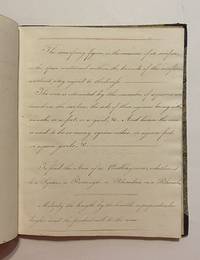 The area of any figure is the measure of its surface,
or the space contained within the bounds of the surface,
without any regard to thickness.
The area is estimated by the number of squares
contained in the surface, the side of those squares being either
an inch, a foot, a yard, &c. And hence the area
is said to be so many square inches, or square feet,
or square yards, &c.
To find the Area of a Parallelogram, whether it
be a Square, a Rectangle, a Rhombus, or a Rhomboid
Multiply the length by the breadth, or perpendicular
height, and the product will be the area.